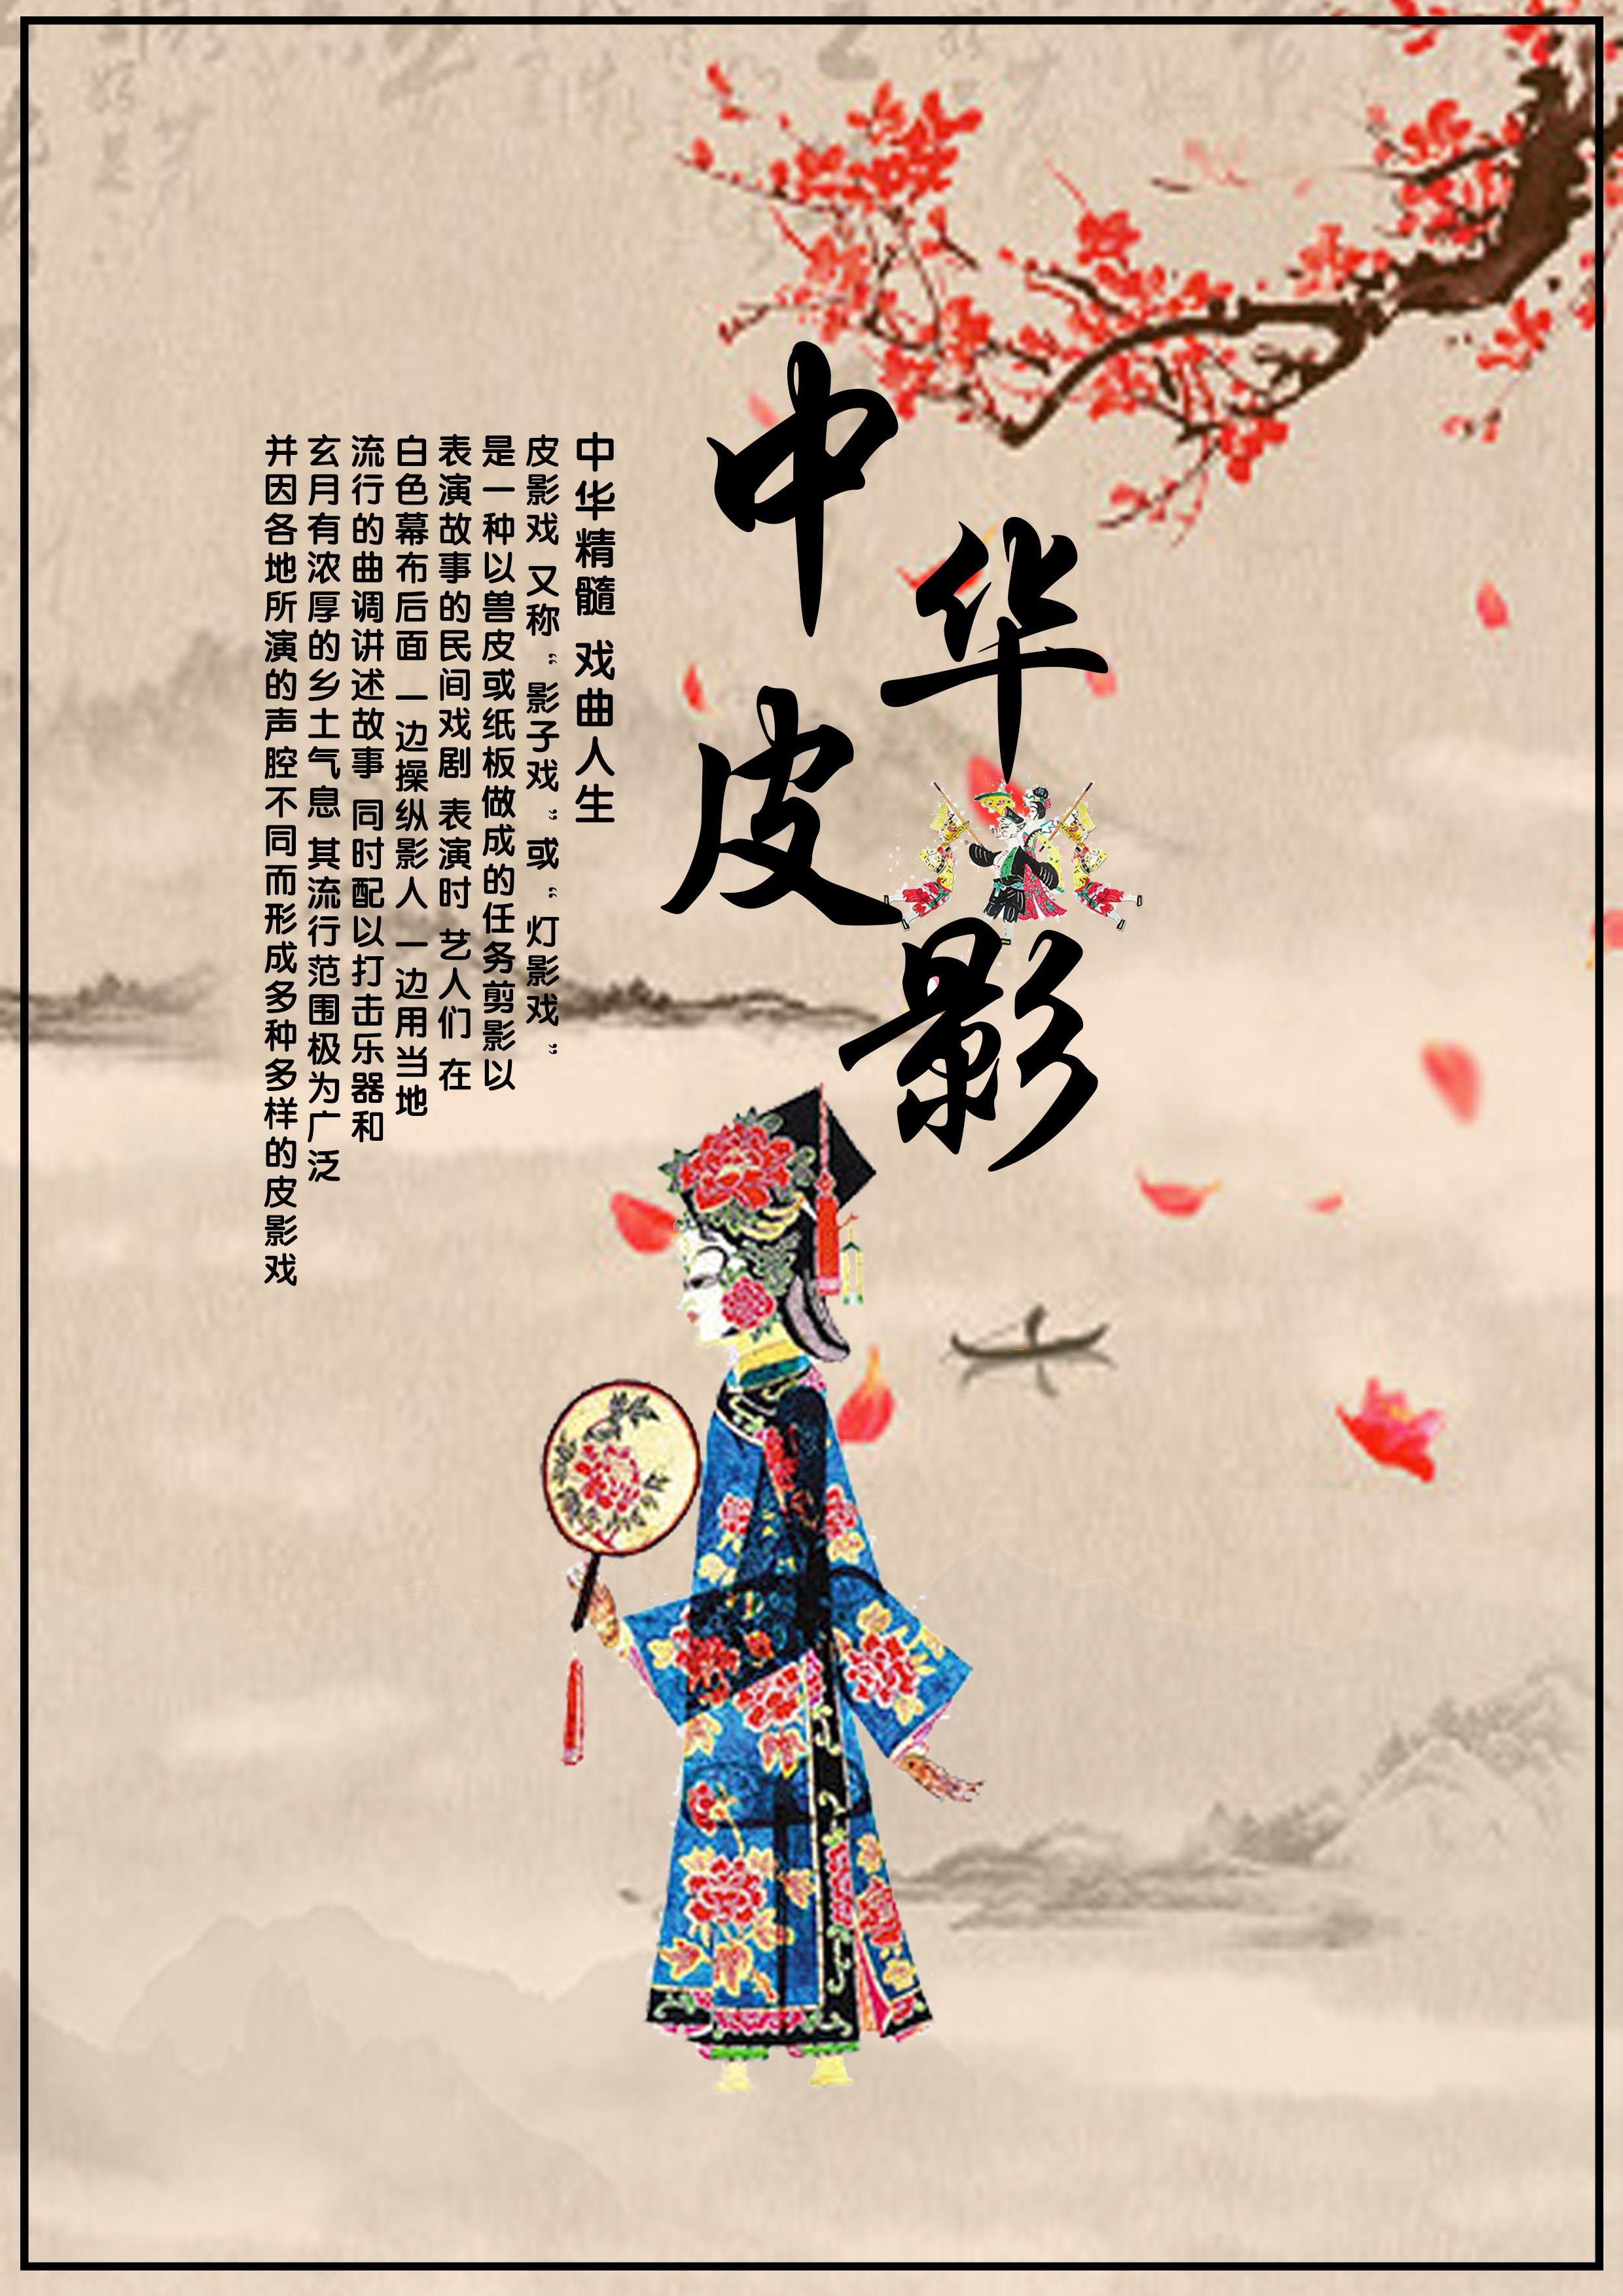 中华
皮影
中华精髓 戏曲人生
皮影戏 又称“影子戏”或“灯影戏”
是一种以兽皮或纸板做成的任务剪影以
表演故事的民间戏剧 表演时 艺人们 在
白色幕布后面 一边操纵影人 一边用当地
流行的曲调讲述故事 同时配以打击乐器和
玄月有浓厚的乡土气息 其流行范围极为广泛
并因各地所演的声腔不同而形成多种多样的皮影戏